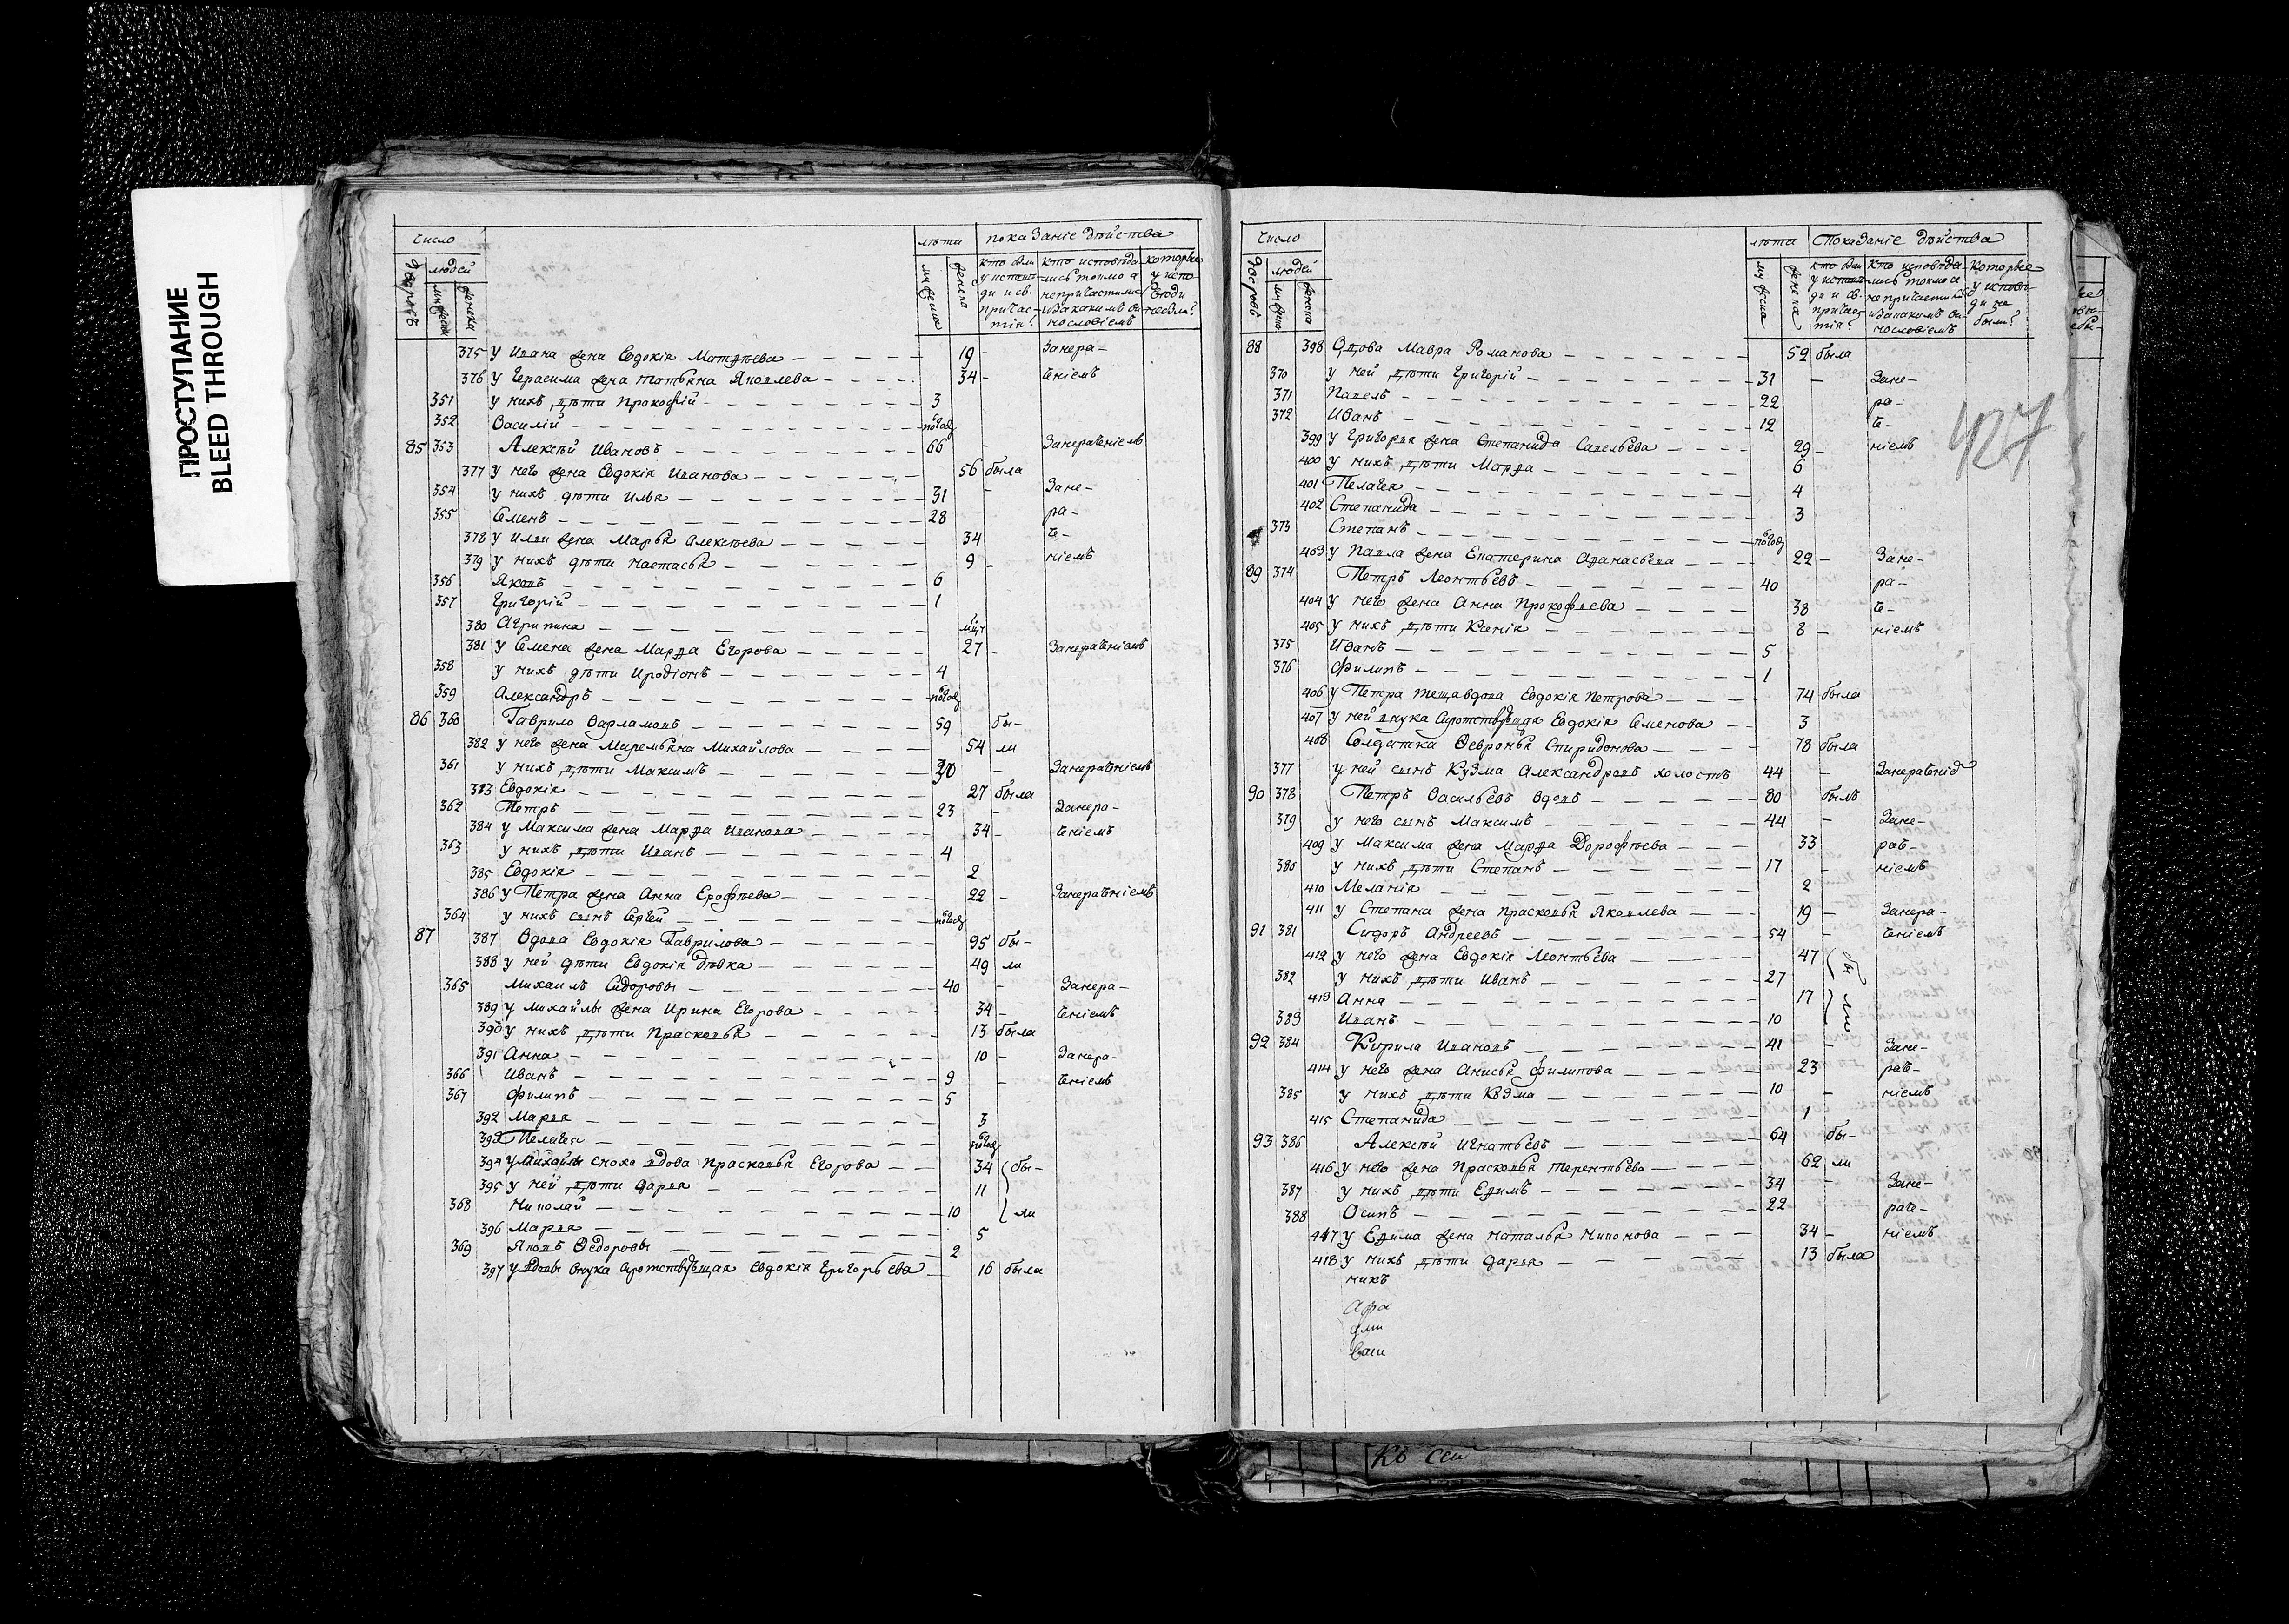 ПРОСТУПАНИЕ
BLEED THROUGH
число лѣта показаніе дѣйства
дворовъ людей мужеска женска
мужеска женска кто были у исповѣди и св. причастія? кто исповѣдались токмо а не причастились и за какимъ винословіемъ которые у исповѣди не были?
375 У Ивана жена Евдокія Матвѣева 19 - Занера-
376 У Герасима жена Татьяна Яковлева 34 - ченіемъ
351 у нихъ дѣти Прокофій 3
352 Василій полгод
85 353 Алексѣй Ивановъ 66 - Занераченіемъ
377 У него жена Евдокія Иванова 56 была
354 у нихъ дѣти Илья 31 - Зане-
355 Семенъ 28 ра-
378 У Ильи жена Марья Алексѣева 34 че-
379 У нихъ дѣти Настасья 9 - ніемъ
356 Яковъ 6
357 Григорій 1
380 Агрипина
381 у Семена жена Марѳа Егорова 27 - Занераченіемъ
358 у нихъ дѣти Иродіонъ 4
359 Александръ полгод
86 360 Гаврило Варламовъ 59 бы-
382 у него жена Маремьяна Михайлова 54 ли
361 у нихъ дѣти Максимъ 30 - Занераченіемъ
383 Евдокія 27 была
362 Петръ 23 - Занера-
384 у Максима жена Марѳа Иванова 34 - ченіемъ
363 у нихъ дѣти Иванъ 4
385 Евдокія 2
386 У Петра жена Анна Ерофѣева 22 - Занераченіемъ
364 у нихъ сынъ Сергей полгод
87 387 Вдова Евдокія Гаврилова 95 бы-
388 у ней дѣти Евдокія дѣвка 49 ли
365 Михаилъ Сидоровы 40 - Занера-
389 У Михайлы жена Ирина Егорова 34 - ченіемъ
390 У нихъ дѣти Прасковья 13 была
391 Анна 10 - Занера-
366 Иванъ 9 - ченіемъ
367 Филипъ 5
392 Марья 3
393 Пелагея полгод
394 У Михайлы сноха вдова Прасковья Егорова 34 бы-
395 у ней дѣти Дарья 11
368 Николай 10 ли
396 Марья 5
369 Яковъ Ѳедоровы 2
397 У вдовы внука сиротствующая Евдокія Григорьева 16 была
число лѣта Показаніе дѣйства
дворовъ людей мужеска женска
мужеска женска кто были у исповѣди и св. причастія? Кто исповѣдались токмо а не причастились и за какимъ винословіемъ Которые у исповѣди не были?
427
88 398 Вдова Мавра Романова 52 была
370 у ней дѣти Григорій 31 - Зане-
371 Павелъ 22 ра-
372 Иванъ 12 че-
399 у Григорья жена Степанида Савельева 29 - ніемъ
400 у нихъ дѣти Марѳа 6
401 Пелагея 4
402 Степанида 3
373 Степанъ полгод
403 У Павла жена Екатерина Афанасьева 22 - Зане-
89 374 Петръ Леонтьевъ 40 ра-
404 У него жена Анна Прокофьева 38 че-
405 У нихъ дѣти Ксенія 8 - ніемъ
375 Иванъ 5
376 Филипъ 1
406 У Петра теща вдова Евдокія Петрова 74 была
407 У ней внука сиротствующая Евдокія Семенова 3
408 Солдатка Ѳевронья Спиридонова 78 была
377 у ней сынъ Кузма Александровъ холостъ 44 - Занераченіе
90 378 Петръ Васильевъ вдовъ 80 былъ
379 у него сынъ Максимъ 44 - Зане-
409 у Максима жена Марѳа Дорофѣева 33 рače-
380 у нихъ дѣти Степанъ 17 - ніемъ
410 Меланія 2
411 у Степана жена Прасковья Яковлева 19 - Занера-
91 381 Сидоръ Андреевъ 54 - ченіемъ
412 У него жена Евдокія Леонтьева 47 бы
382 у нихъ дѣти Иванъ 27
413 Анна 17 ли
383 Иванъ 10
92 384 Кирила Ивановъ 41 - Зане-
414 у него жена Анисья Филипова 23 раче-
385 у нихъ дѣти Кузма 10 - ніемъ
415 Степанида 1
93 386 Алексѣй Игнатьевъ 64 бы-
416 у него жена Прасковья Терентьева 62 ли
387 у нихъ дѣти Ефимъ 34 - Зане-
388 Осипъ 22 раче-
417 у Ефима жена Наталья Никонова 34 - ніемъ
418 у нихъ дѣти Дарья 13 была
никъ
Ира
Къ